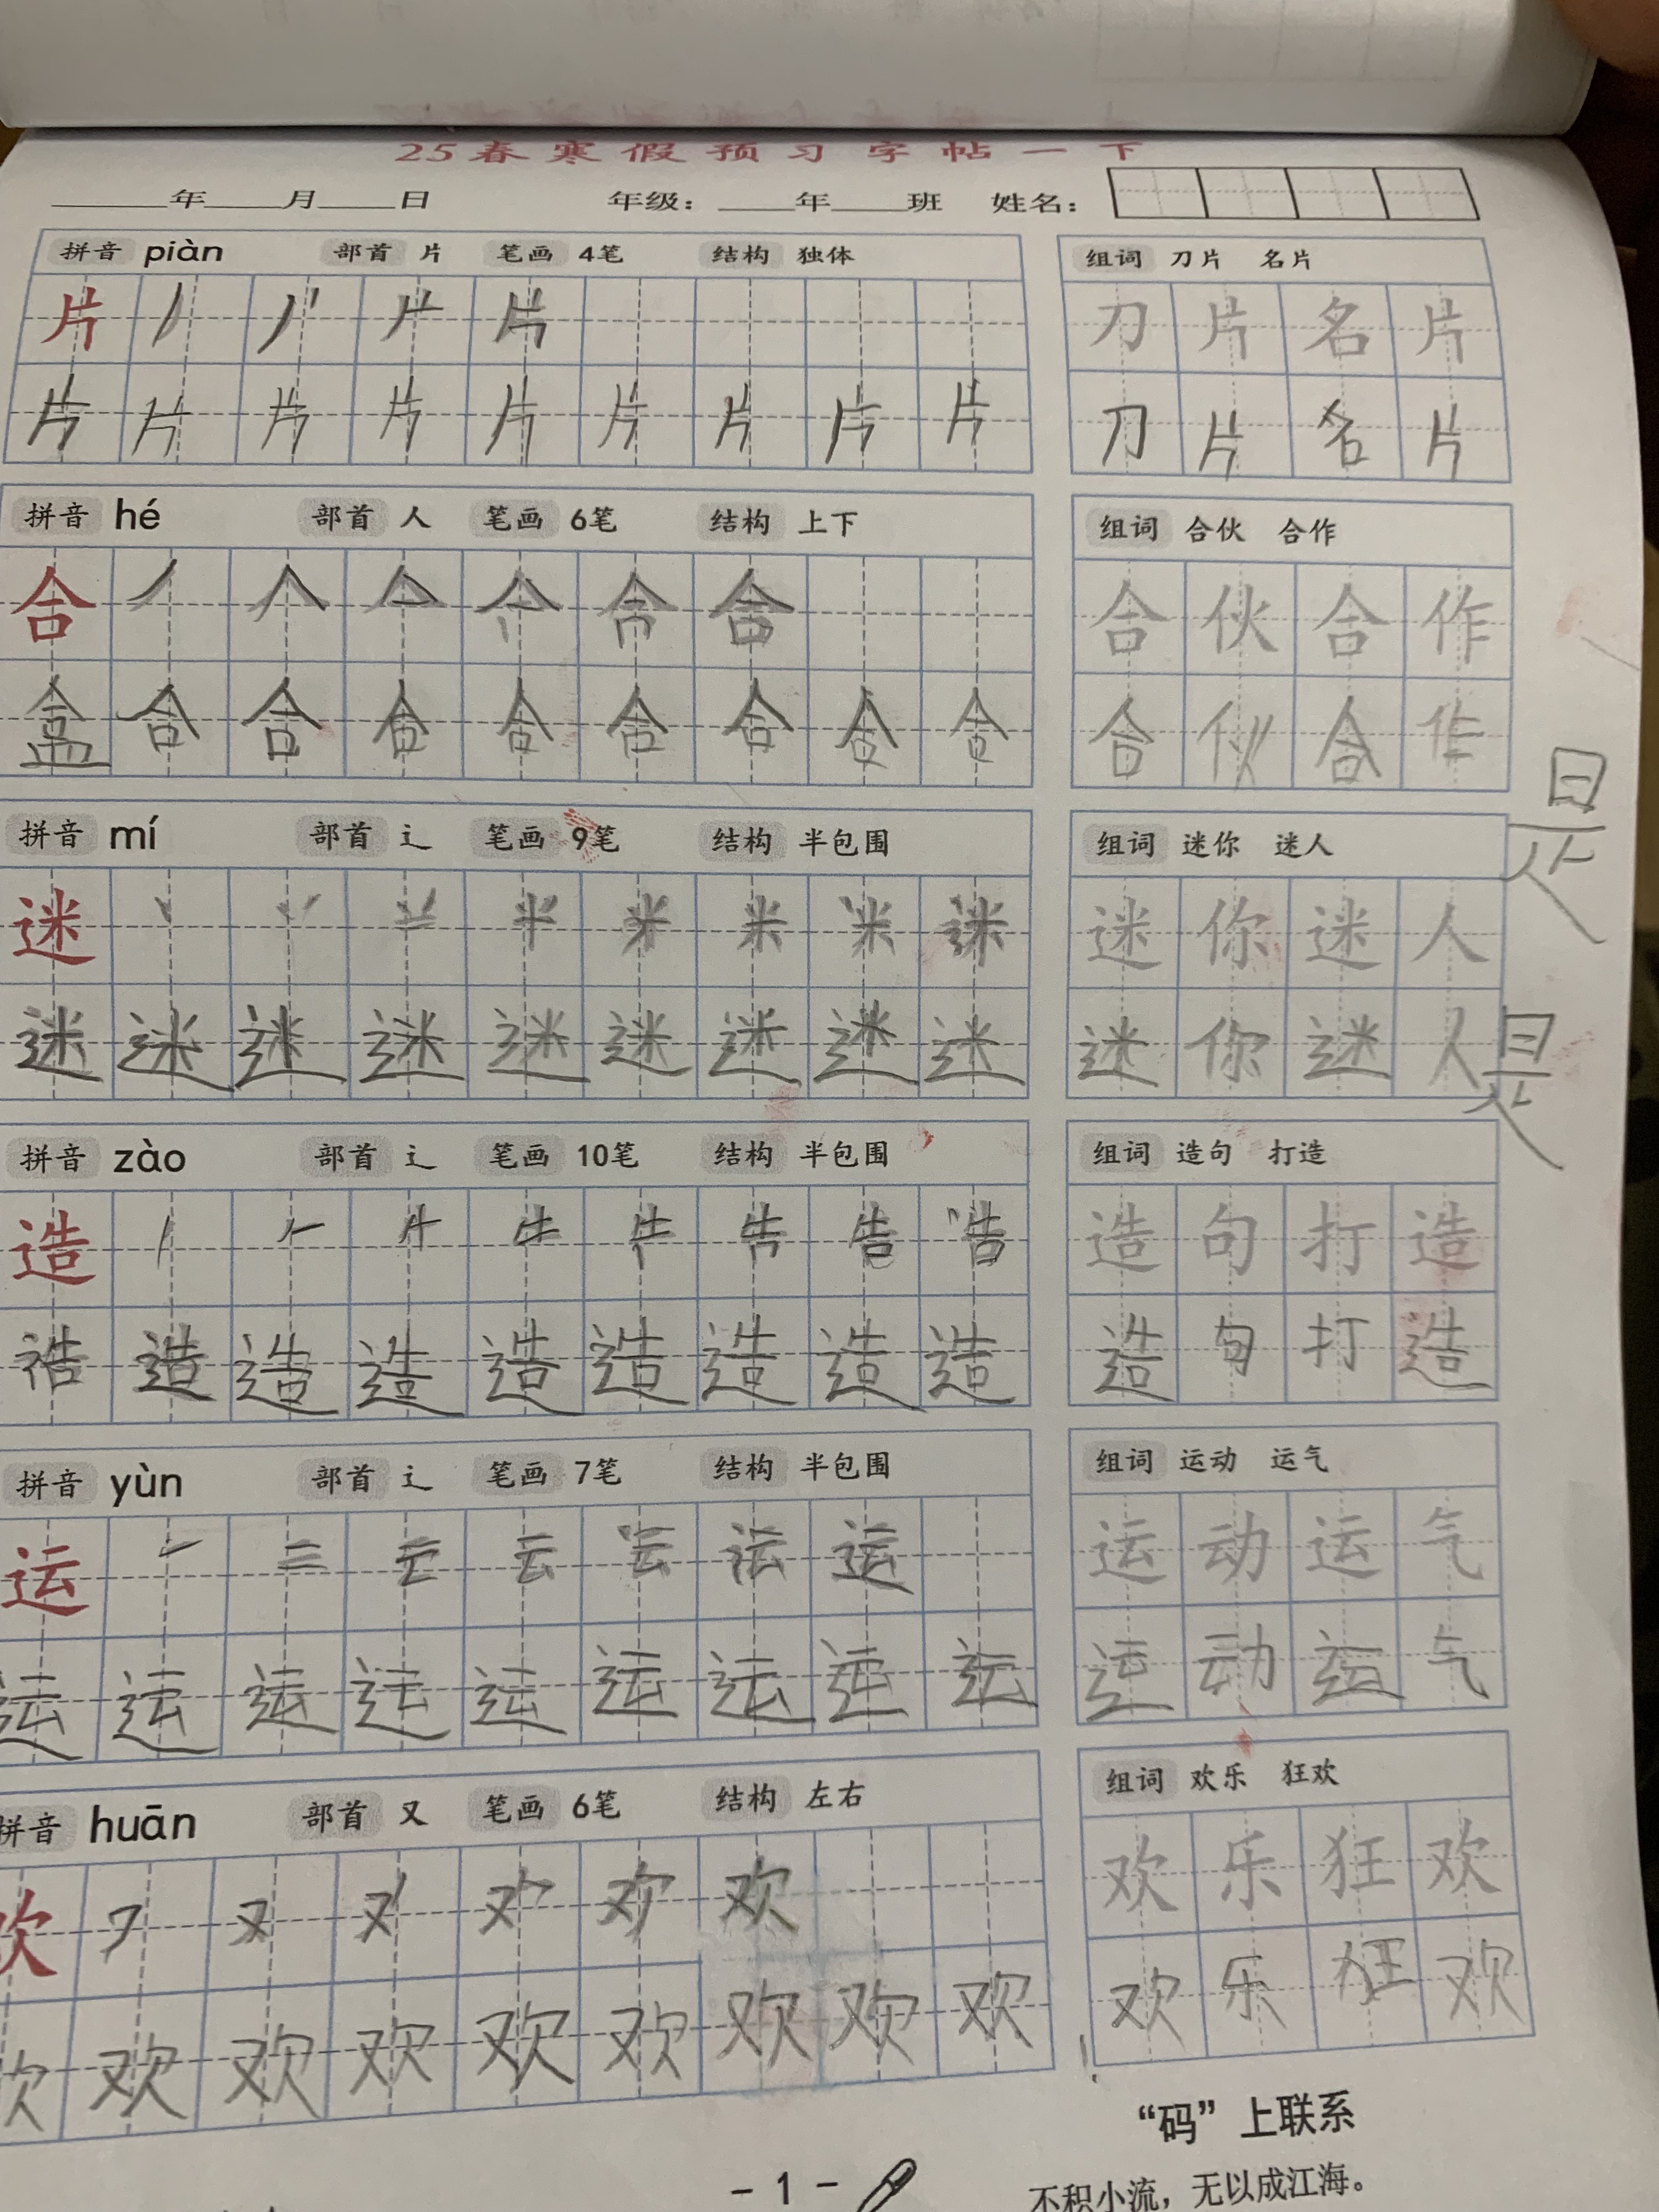 25春寒假预习字帖一下
年 月 日 年级： 年 班 姓名：
拼音 piàn 部首 片 笔画 4笔 结构 独体 组词 刀片 名片
片 丿 片 刀 片 名 片
片 片 片 片 片 片 片 片 片 刀 片 名 片
拼音 hé 部首 人 笔画 6笔 结构 上下 组词 合伙 合作
合 丿 人 亼 合 合 伙 合 作
盒 合 合 合 合 合 合 合 合 合 伙 合 作
是
拼音 mí 部首 辶 笔画 9笔 结构 半包围 组词 迷你 迷人
迷 丶 丷 米 迷 你 迷 人
迷 迷 迷 迷 迷 迷 迷 迷 迷 迷 你 迷 人
是
拼音 zào 部首 辶 笔画 10笔 结构 半包围 组词 造句 打造
造 丿 𠂉 牛 告 造 句 打 造
造 造 造 造 造 造 造 造 造 句 打 造
拼音 yùn 部首 辶 笔画 7笔 结构 半包围 组词 运动 运气
运 一 二 云 云 运 运 动 运 气
运 运 运 运 运 运 运 运 运 运 动 运 气
拼音 huān 部首 又 笔画 6笔 结构 左右 组词 欢乐 狂欢
欢 フ 又 欢 欢 乐 狂 欢
欢 欢 欢 欢 欢 欢 欢 欢 欢 欢 乐 狂 欢
“码”上联系
- 1 -
不积小流，无以成江海。